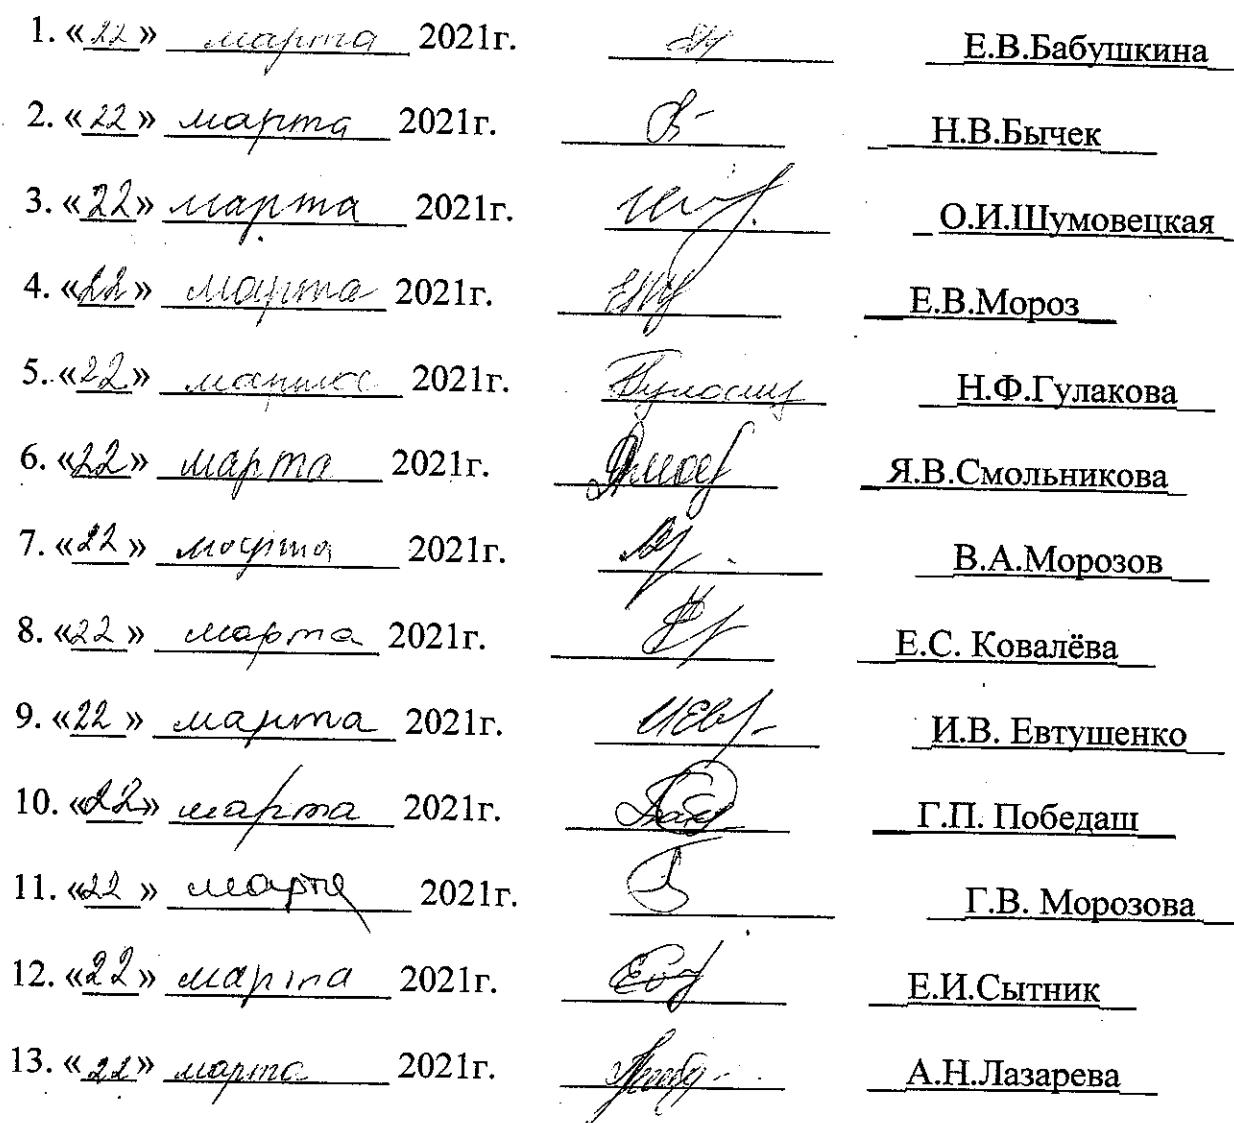 1. «22» марта 2021г. Е.В.Бабушкина
2. «22» марта 2021г. Н.В.Бычек
3. «22» марта 2021г. О.И.Шумовецкая
4. «22» марта 2021г. Е.В.Мороз
5. «22» марта 2021г. Н.Ф.Гулакова
6. «22» марта 2021г. Я.В.Смольникова
7. «22» марта 2021г. В.А.Морозов
8. «22» марта 2021г. Е.С. Ковалёва
9. «22» марта 2021г. И.В. Евтушенко
10. «22» марта 2021г. Г.П. Победаш
11. «22» марта 2021г. Г.В. Морозова
12. «22» марта 2021г. Е.И.Сытник
13. «22» марта 2021г. А.Н.Лазарева